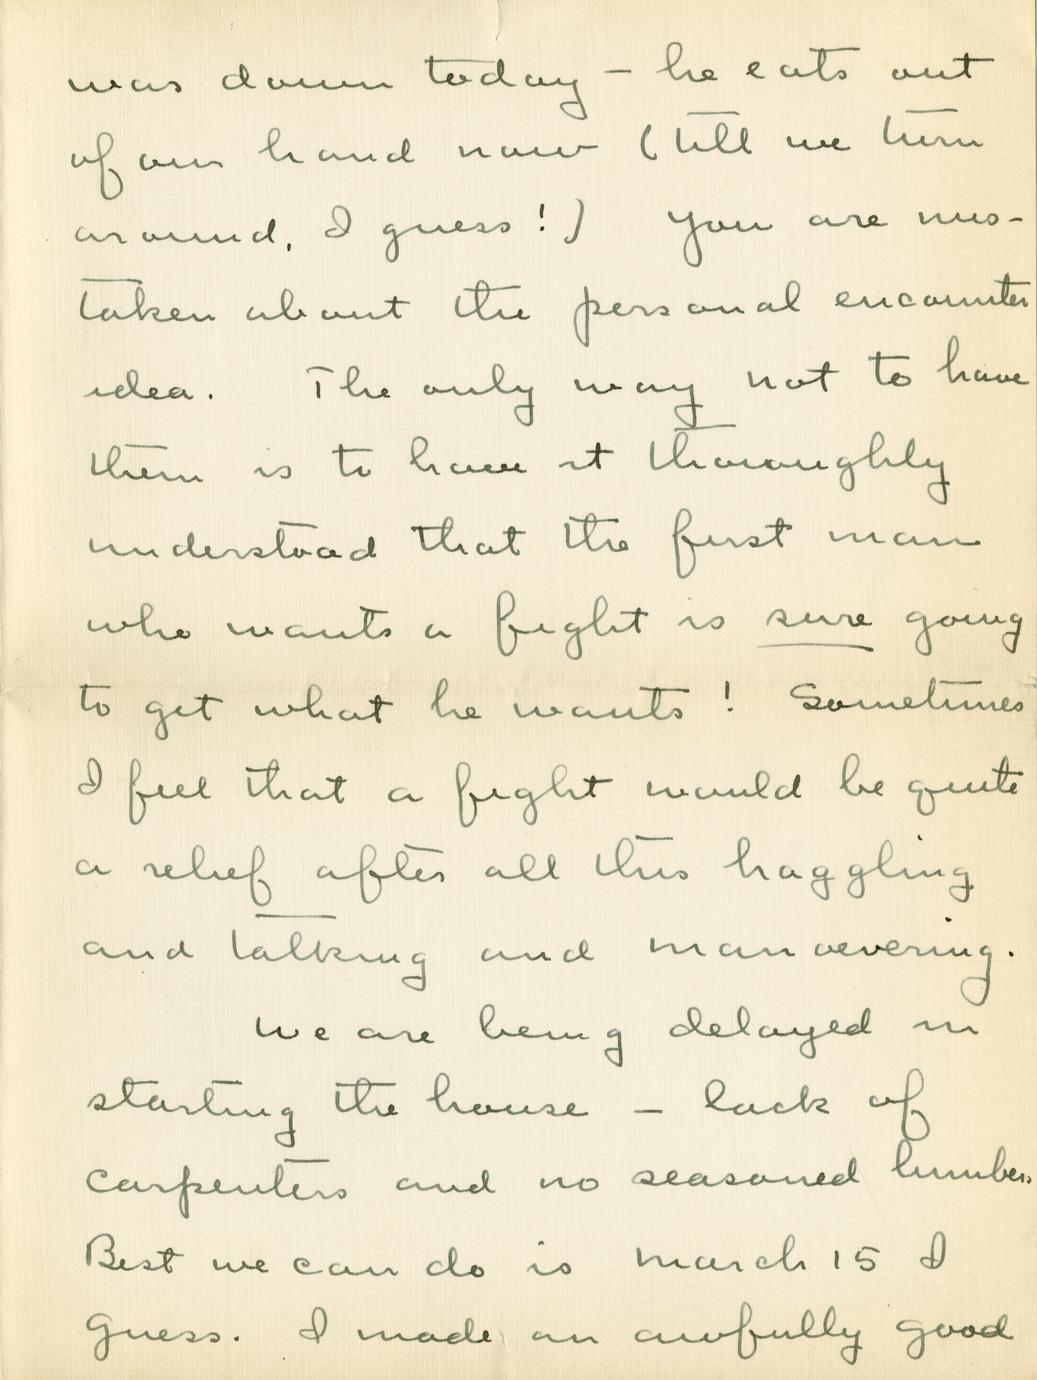 was down today – he eats out
of our hand now (till we turn
around, I guess!) You are mis-
taken about the personal encounter
idea. The only way not to have
them is to have it thoroughly
understood that the first man
who wants a fight is sure going
to get what he wants! Sometimes
I feel that a fight would be quite
a relief after all this haggling
and talking and manoevering.
We are being delayed in
starting the house – lack of
carpenters and no seasoned lumber.
Best we can do is March 15 I
guess. I made an awfully good